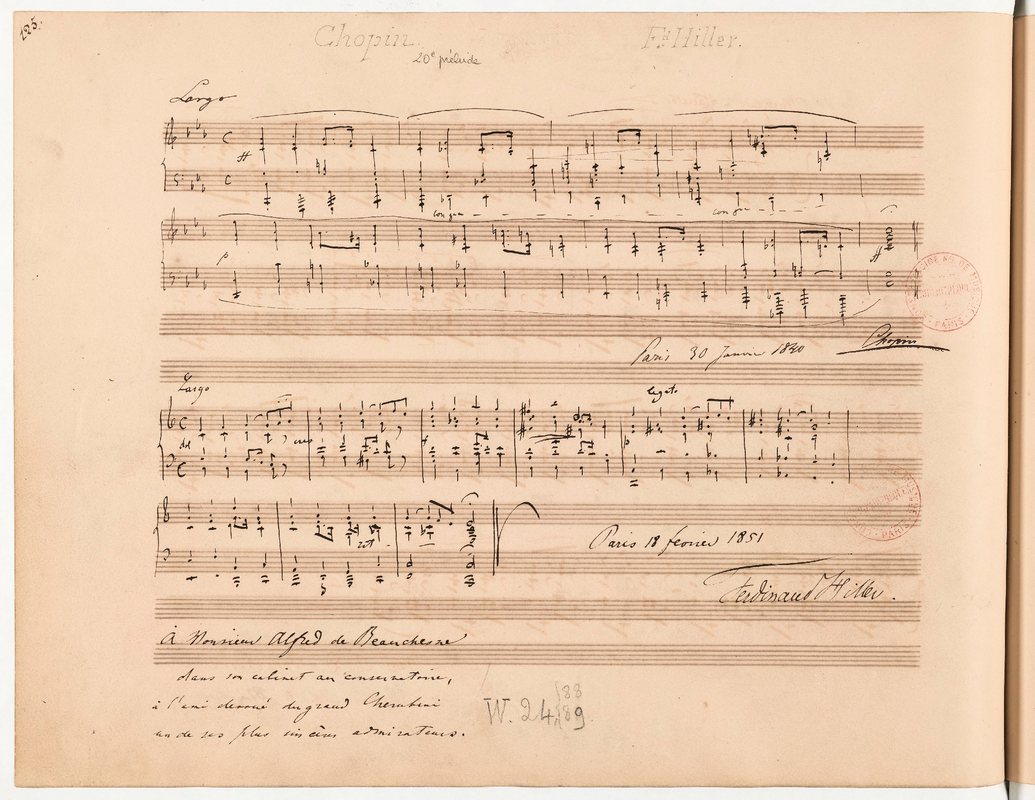 125.
Chopin. Fd. Hiller.
20e prélude
Largo
ff
con 8va
con 8va
p
ff
Paris 30 Janvier 1840
Chopin
Largo
legato
cres
Paris 18 fevrier 1851
Ferdinand Hiller.
A Monsieur Alfred de Beauchesne
dans son cabinet au conservatoire,
à l'ami dévoué du grand Cherubini
un de ses plus sincères admirateurs.
W. 24, 88
89.